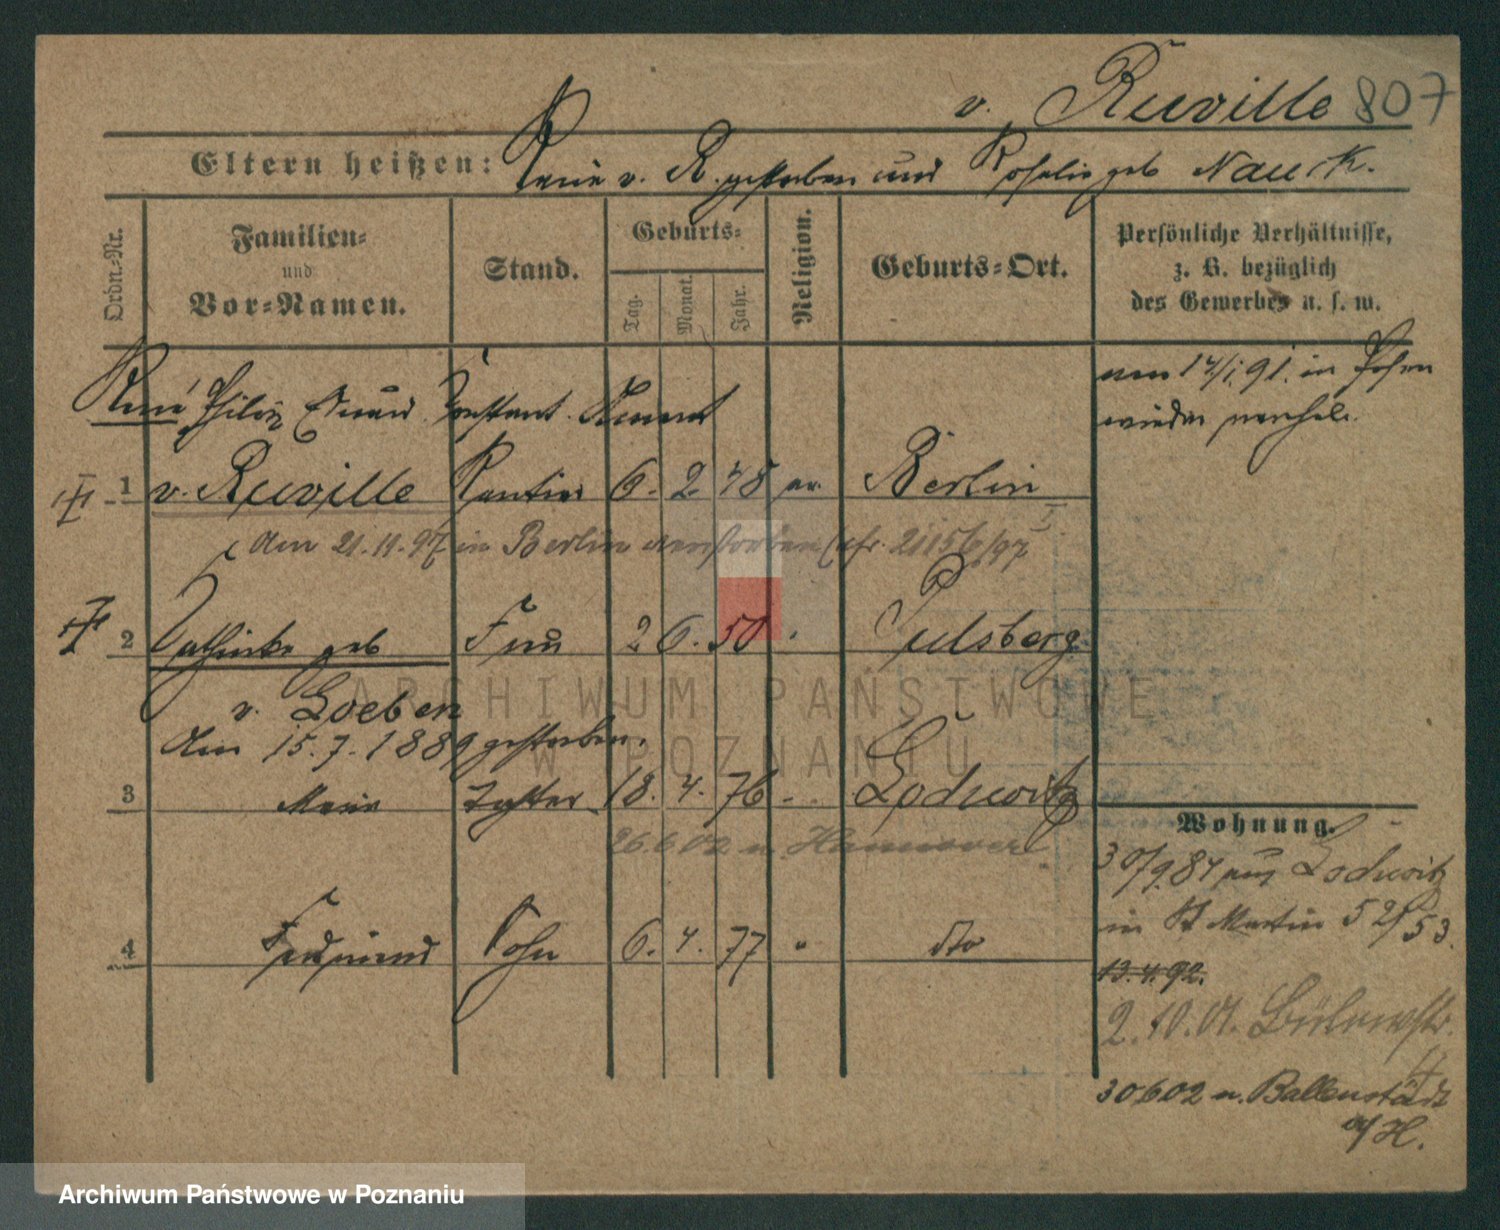 v. Reuville 807
Eltern heißen: René v. R. gestorben und Rosalie geb Nauck.
Ordn.-Nr.
Familien-
und
Vor-Namen.
Stand.
Geburts-
Tag.
Monat.
Jahr.
Religion.
Geburts-Ort.
Persönliche Verhältnisse,
z. B. bezüglich
des Gewerbes u. s. w.
René Eduard Constant
in Posen
wieder
1 v. Reuville Rentier 6. 2. 48 ev. Berlin
Am 21.11.97 in Berlin verstorben (cfr. 21156/97
2 Kathinka geb Frau 2 6. 50 Pulsberg
v. Loeben
Am 15.7.1889 gestorben.
3 Marie Tochter 18. 4. 76 Lodwitz
26.6.02 n. Hannover
4 Ferdinand Sohn 6. 4. 77 " dto
Wohnung.
30/9.84 aus Lodwitz
in St Martin 52/53.
13.4.92.
2.10.01. Bülowstr.
4
30602 n. Ballenstädt
a/H.
ARCHIWUM PAŃSTWOWE
W POZNANIU
Archiwum Państwowe w Poznaniu